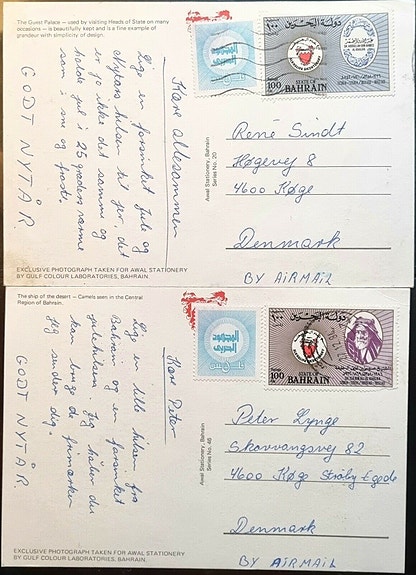 The Guest Palace – used by visiting Heads of State on many
occasions – is beautifully kept and is a fine example of
grandeur with simplicity of design.
Kære allesammen
Lig en forsinket jule og
Nytårs hilsen til jer, det
er jo ikke det samme og
holde jul i 25 graders varme
som i sne og frost.
GODT NYTÅR
EXCLUSIVE PHOTOGRAPH TAKEN FOR AWAL STATIONERY
BY GULF COLOUR LABORATORIES, BAHRAIN.
Awal Stationery, Bahrain
Series No. 20
المجهود
الحربي
دولة البحرين
١٠٠
100
STATE OF
BAHRAIN
René Sindt
Høgevej 8
4600 Køge
Denmark
BY AIRMAIL
The ship of the desert – Camels seen in the Central
Region of Bahrain.
Kære Peter
Lig en lille hilsen fra
Bahrain og en forsinket
julehilsen. Jeg håber du
kan bruge de frimærker
jeg sender dig.
GODT NYTÅR
EXCLUSIVE PHOTOGRAPH TAKEN FOR AWAL STATIONERY
BY GULF COLOUR LABORATORIES, BAHRAIN.
Awal Stationery, Bahrain
Series No. 46
المجهود
الحربي
فلسان
دولة البحرين
١٠٠
100
STATE OF
BAHRAIN
Peter Lynge
Skovvangsvej 82
4600 Køge Strøby Egede
Denmark
BY AIRMAIL